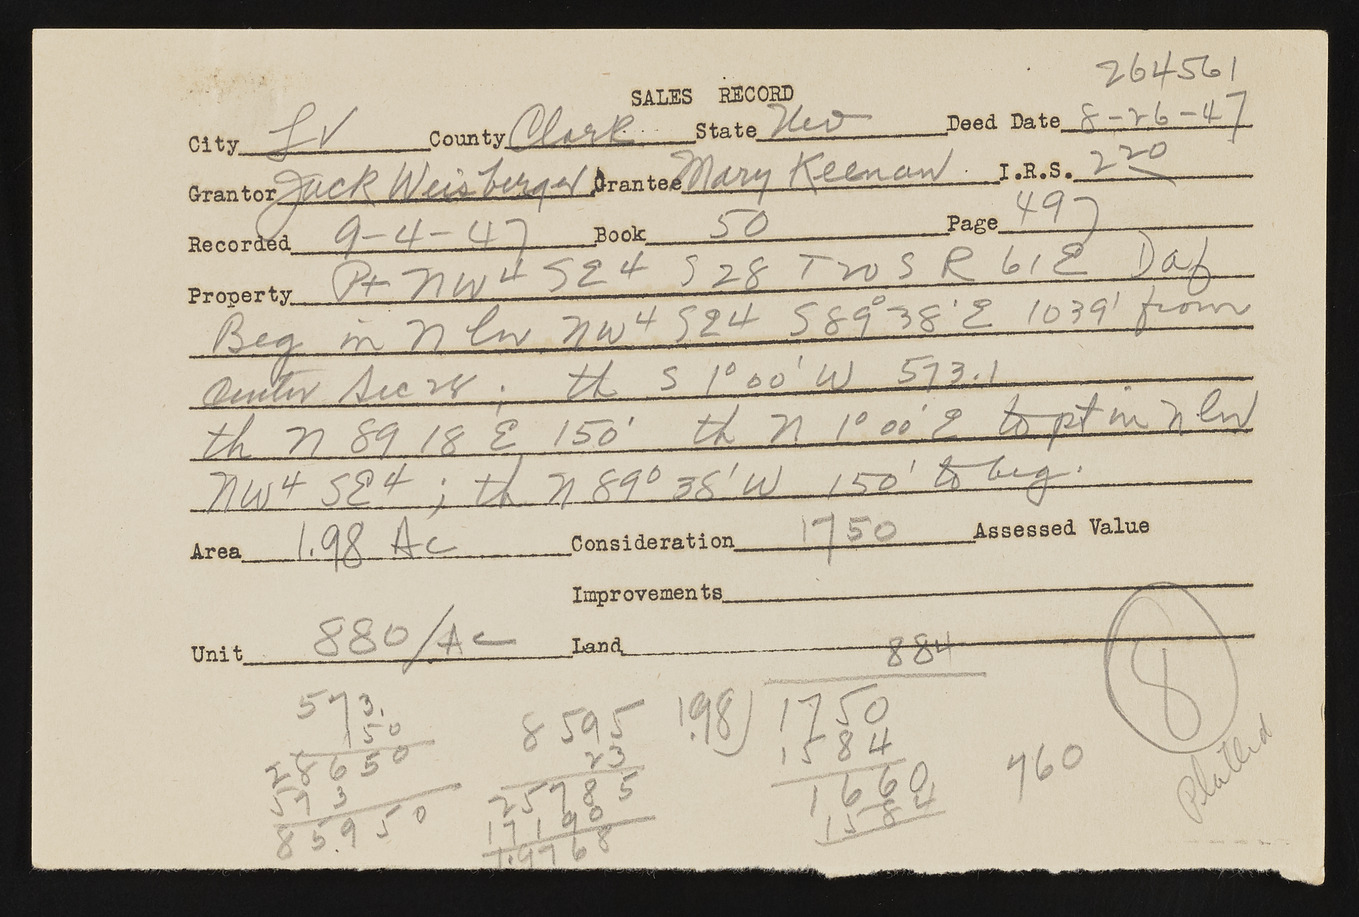 264561
SALES RECORD
City LV County Clark State Nev Deed Date 8-26-47
Grantor Jack Weisberger Grantee Mary Keenan I.R.S. 2 20
Recorded 9-4-47 Book 50 Page 497
Property Pt NW4 SE4 S 28 T 20 S R 61 E Daf
Beg in N ln NW4 SE4 S 89° 38' E 1039' from
center Sec 28; th S 1° 00' W 573.1
th N 89 18 E 150' th N 1° 00' E to pt in N ln
NW4 SE4; th N 89° 38' W 150' to beg.
Area 1.98 Ac Consideration 1750 Assessed Value
Improvements
Unit 880/Ac Land
884
573. 8595 1.98) 1750 8
150 23 1584 760 Platted
28650 25785 1660
573 17190 1584
85950 1.9768